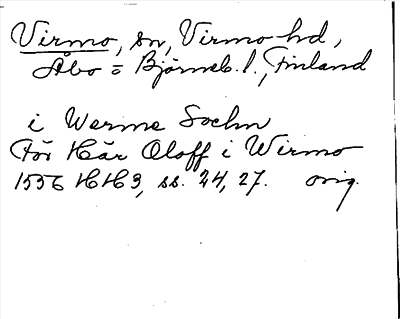 Virmo, sn, Virmo hd,
Åbo = Björneb. l., Finland
i Werme Sochn
För Här Oloff i Wirmo
1556 HH3, ss. 24, 27. orig.